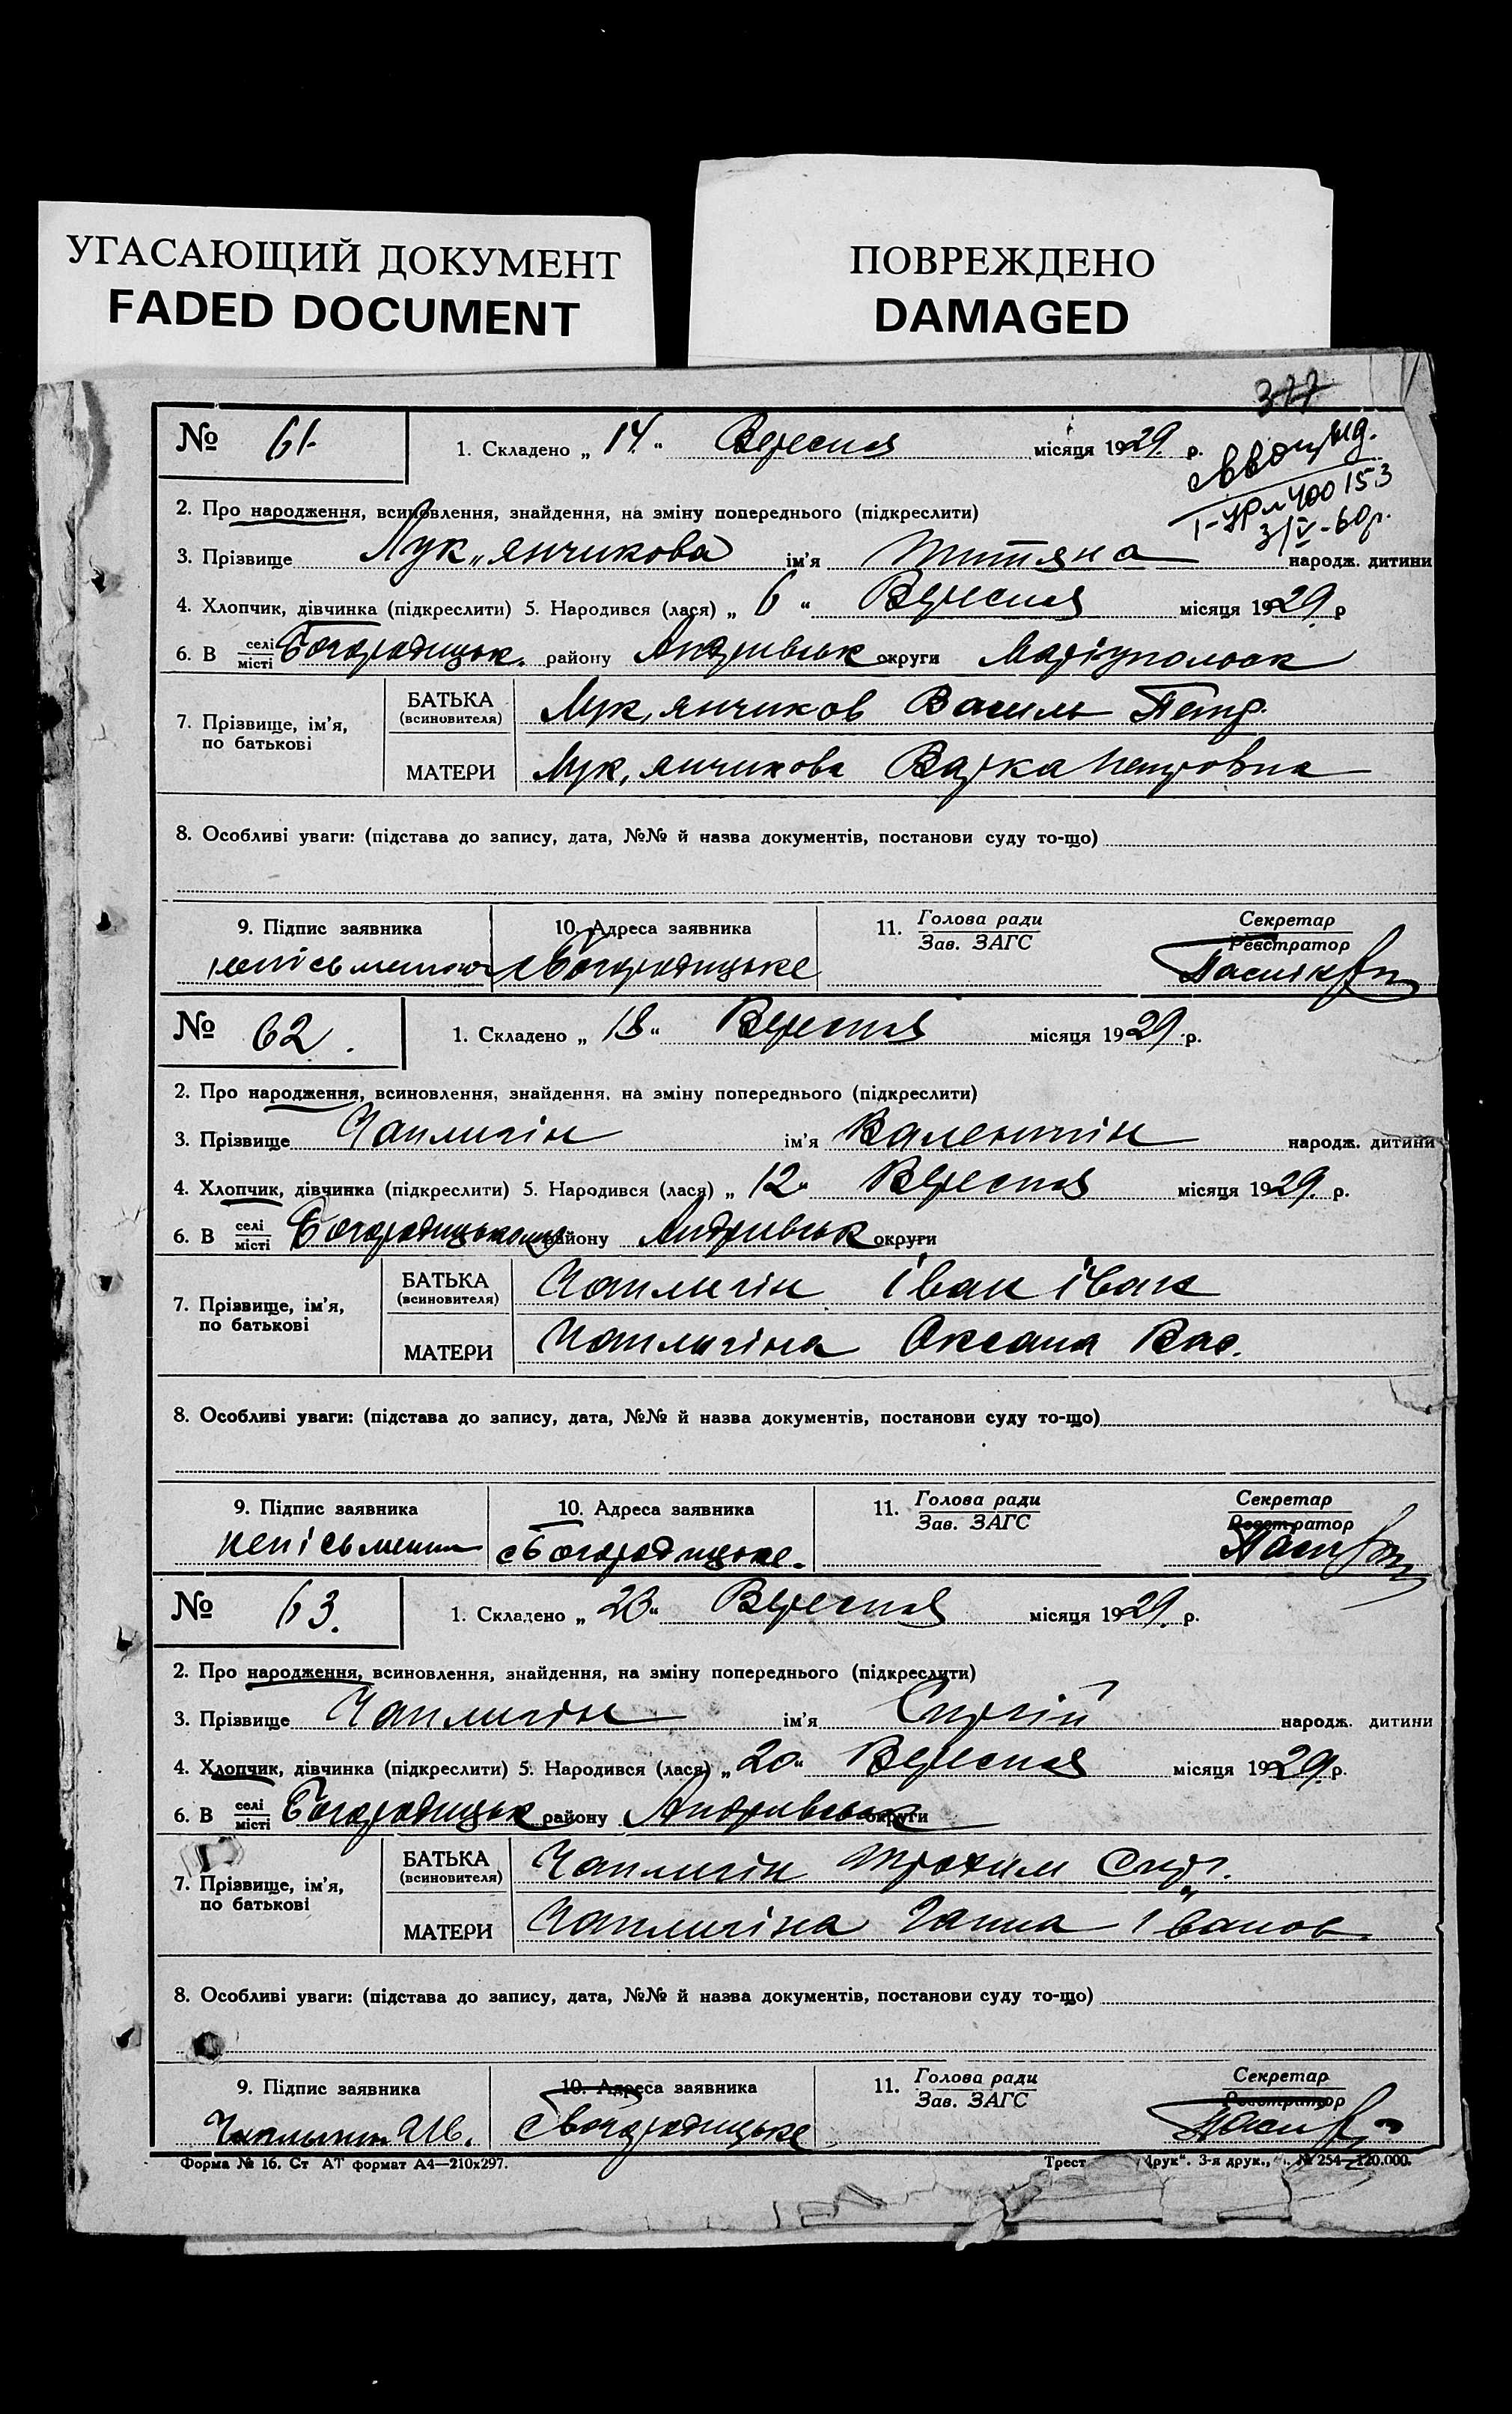 УГАСАЮЩИЙ ДОКУМЕНТ
FADED DOCUMENT
ПОВРЕЖДЕНО
DAMAGED
377
№ 61. 1. Складено „ 14 “ Вересня місяця 1929. р.
3/V-60р.
2. Про народження, всиновлення, знайдення, на зміну попереднього (підкреслити)
3. Прізвище Лук„янчикова ім’я Титяна народж. дитини
4. Хлопчик, дівчинка (підкреслити) 5. Народився (лася) „ 6 “ Вересня місяця 1929. р
6. В селі місті Богородицьк. району Андривськ округи Маріупольск
7. Прізвище, ім’я, по батькові
БАТЬКА (всиновителя) Лук,янчиков Василь Петр.
МАТЕРИ Лук,янчикова Варка Петровна
8. Особливі уваги: (підстава до запису, дата, №№ й назва документів, постанови суду то-що)
9. Підпис заявника 10. Адреса заявника 11. Голова ради Зав. ЗАГС Секретар Реєстратор
неписьменна с Богородицьке
№ 62. 1. Складено „ 18 “ Вересня місяця 1929 р.
2. Про народження, всиновлення, знайдення, на зміну попереднього (підкреслити)
3. Прізвище Чаплигін ім’я Валентін народж. дитини
4. Хлопчик, дівчинка (підкреслити) 5. Народився (лася) „ 12 “ Вересня місяця 1929. р.
6. В селі місті Богородицькому району Андривськ округи
7. Прізвище, ім’я, по батькові
БАТЬКА (всиновителя) Чаплигін Іван Іван
МАТЕРИ Чаплигіна Оксана Вас.
8. Особливі уваги: (підстава до запису, дата, №№ й назва документів, постанови суду то-що)
9. Підпис заявника 10. Адреса заявника 11. Голова ради Зав. ЗАГС Секретар Реєстратор
непісьменни с Богородицьке.
№ 63. 1. Складено „ 23 “ Вересня місяця 1929. р.
2. Про народження, всиновлення, знайдення, на зміну попереднього (підкреслити)
3. Прізвище Чаплигін ім’я Сиргій народж. дитини
4. Хлопчик, дівчинка (підкреслити) 5. Народився (лася) „ 20 “ Вересня місяця 1929. р.
6. В селі місті Богородицьк району Андривськ округи
7. Прізвище, ім’я, по батькові
БАТЬКА (всиновителя) Чаплигін Трохим Сирг.
МАТЕРИ Чаплигіна Ганна Іванов
8. Особливі уваги: (підстава до запису, дата, №№ й назва документів, постанови суду то-що)
9. Підпис заявника 10. Адреса заявника 11. Голова ради Зав. ЗАГС Секретар Реєстратор
с Богородицьке
Форма № 16. Ст АТ формат А4—210х297. Трест друк“. 3-я друк., № 254—120.000.